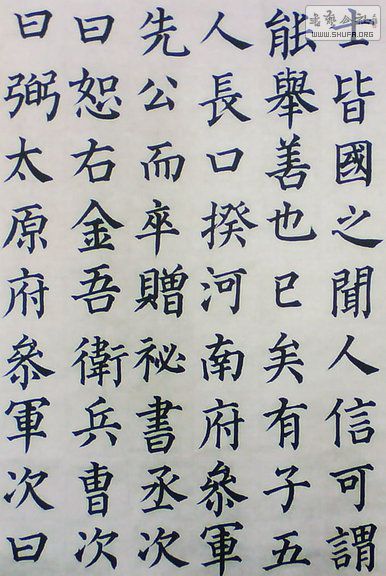 士皆國之聞人信可謂
能舉善也已矣有子五
人長口揆河南府叅軍
先公而卒贈祕書丞次
曰恕右金吾衛兵曹次
曰弼太原府叅軍次曰
WWW.SHUFA.ORG